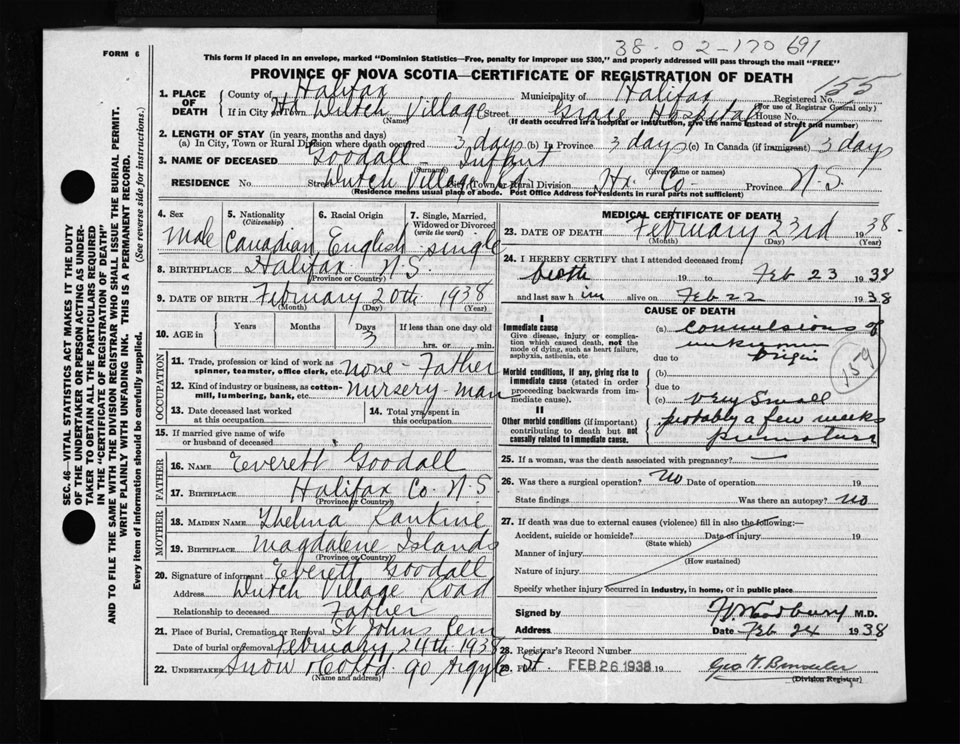 38-02-170 691
FORM 6
This form if placed in an envelope, marked "Dominion Statistics—Free, penalty for improper use $300," and properly addressed will pass through the mail "FREE"
PROVINCE OF NOVA SCOTIA—CERTIFICATE OF REGISTRATION OF DEATH
1. PLACE OF DEATH County of Halifax Municipality of Halifax Registered No. 155
(For use of Registrar General only)
If in City or Town Dutch Village Street Grace Hospital House No.
(Name) (If death occurred in a hospital or institution, give the name instead of street and number)
2. LENGTH OF STAY (in years, months and days)
(a) In City, Town or Rural Division where death occurred 3 days (b) In Province 3 days (c) In Canada (if immigrant) 3 days
3. NAME OF DECEASED Goodall - Infant
(Surname) (Given name or names)
RESIDENCE No. Street Dutch Village Rd City, Town or Rural Division Hx Co- Province N.S.
(Residence means usual place of abode. Post Office Address for residents in rural parts not sufficient)
4. Sex Male
5. Nationality (Citizenship) Canadian
6. Racial Origin English
7. Single, Married, Widowed or Divorced (write the word) single
8. BIRTHPLACE Halifax N.S.
(Province or Country)
9. DATE OF BIRTH February 20th 1938
(Month) (Day) (Year)
10. AGE in Years Months Days 3 If less than one day old hrs. or min.
OCCUPATION
11. Trade, profession or kind of work as spinner, teamster, office clerk, etc. none - Father
12. Kind of industry or business, as cotton-mill, lumbering, bank, etc. nursery-man
13. Date deceased last worked at this occupation
14. Total yrs. spent in this occupation
15. If married give name of wife or husband of deceased
FATHER
16. NAME Everett Goodall
17. BIRTHPLACE Halifax Co. N.S
(Province or Country)
MOTHER
18. MAIDEN NAME Thelma Rankine
19. BIRTHPLACE Magdalene Islands
(Province or Country)
20. Signature of informant Everett Goodall
Address Dutch Village Road
Relationship to deceased Father
21. Place of Burial, Cremation or Removal St Johns Cem
Date of burial or removal February 24th 1938
22. UNDERTAKER Snow & Co Ltd. 90 Argyle St.
(Name and address)
MEDICAL CERTIFICATE OF DEATH
23. DATE OF DEATH February 23rd 1938.
(Month) (Day) (Year)
24. I HEREBY CERTIFY that I attended deceased from
birth 19 to Feb 23 1938
and last saw him alive on Feb 22 1938
CAUSE OF DEATH
I
Immediate cause
Give disease, injury or complication which caused death, not the mode of dying, such as heart failure, asphyxia, asthenia, etc
(a) convulsions of
unknown
due to origin
159
Morbid conditions, if any, giving rise to immediate cause (stated in order proceeding backwards from immediate cause).
(b)
due to
(c) very small
II
Other morbid conditions (if important) contributing to death but not causally related to immediate cause.
probably a few weeks
premature
25. If a woman, was the death associated with pregnancy?
26. Was there a surgical operation? No Date of operation 19
State findings Was there an autopsy? No
27. If death was due to external causes (violence) fill in also the following:—
Accident, suicide or homicide? Date of injury 19
(State which)
Manner of injury
(How sustained)
Nature of injury
Specify whether injury occurred in industry, in home, or in public place
Signed by Woodbury M.D.
Address Date Feb 24 1938
28. Registrar's Record Number
29. Filed FEB 26 1938 19
(Division Registrar)
SEC. 46—VITAL STATISTICS ACT MAKES IT THE DUTY
OF THE UNDERTAKER OR PERSON ACTING AS UNDER-
TAKER TO OBTAIN ALL THE PARTICULARS REQUIRED
IN THE "CERTIFICATE OF REGISTRATION OF DEATH"
AND TO FILE THE SAME WITH THE DIVISION REGISTRAR WHO SHALL ISSUE THE BURIAL PERMIT.
WRITE PLAINLY WITH UNFADING INK. THIS IS A PERMANENT RECORD.
Every item of information should be carefully supplied. (See reverse side for instructions.)